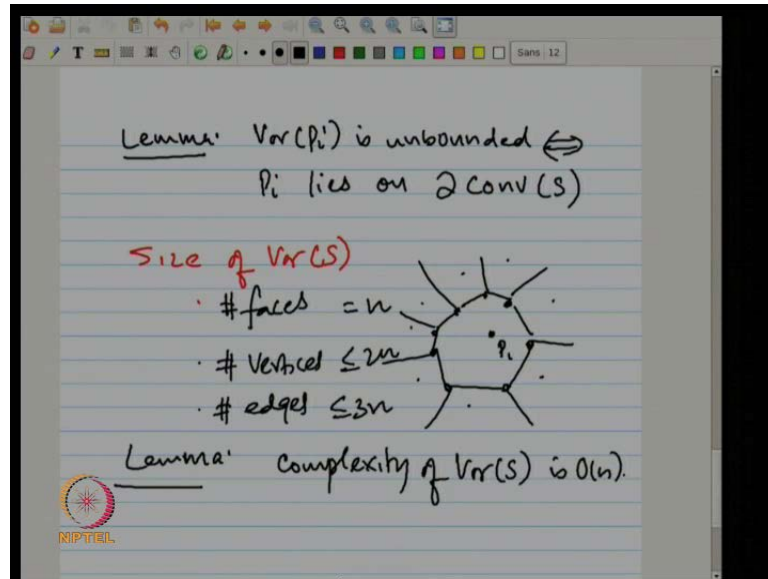 Sans 12
Lemma: Vor(Pi) is unbounded ⇔
Pi lies on ∂ conv(S)
Size of Vor(S)
· # faces = n
· # vertices ≤ 2n
· # edges ≤ 3n
Pi
Lemma: Complexity of Vor(S) is O(n).
NPTEL